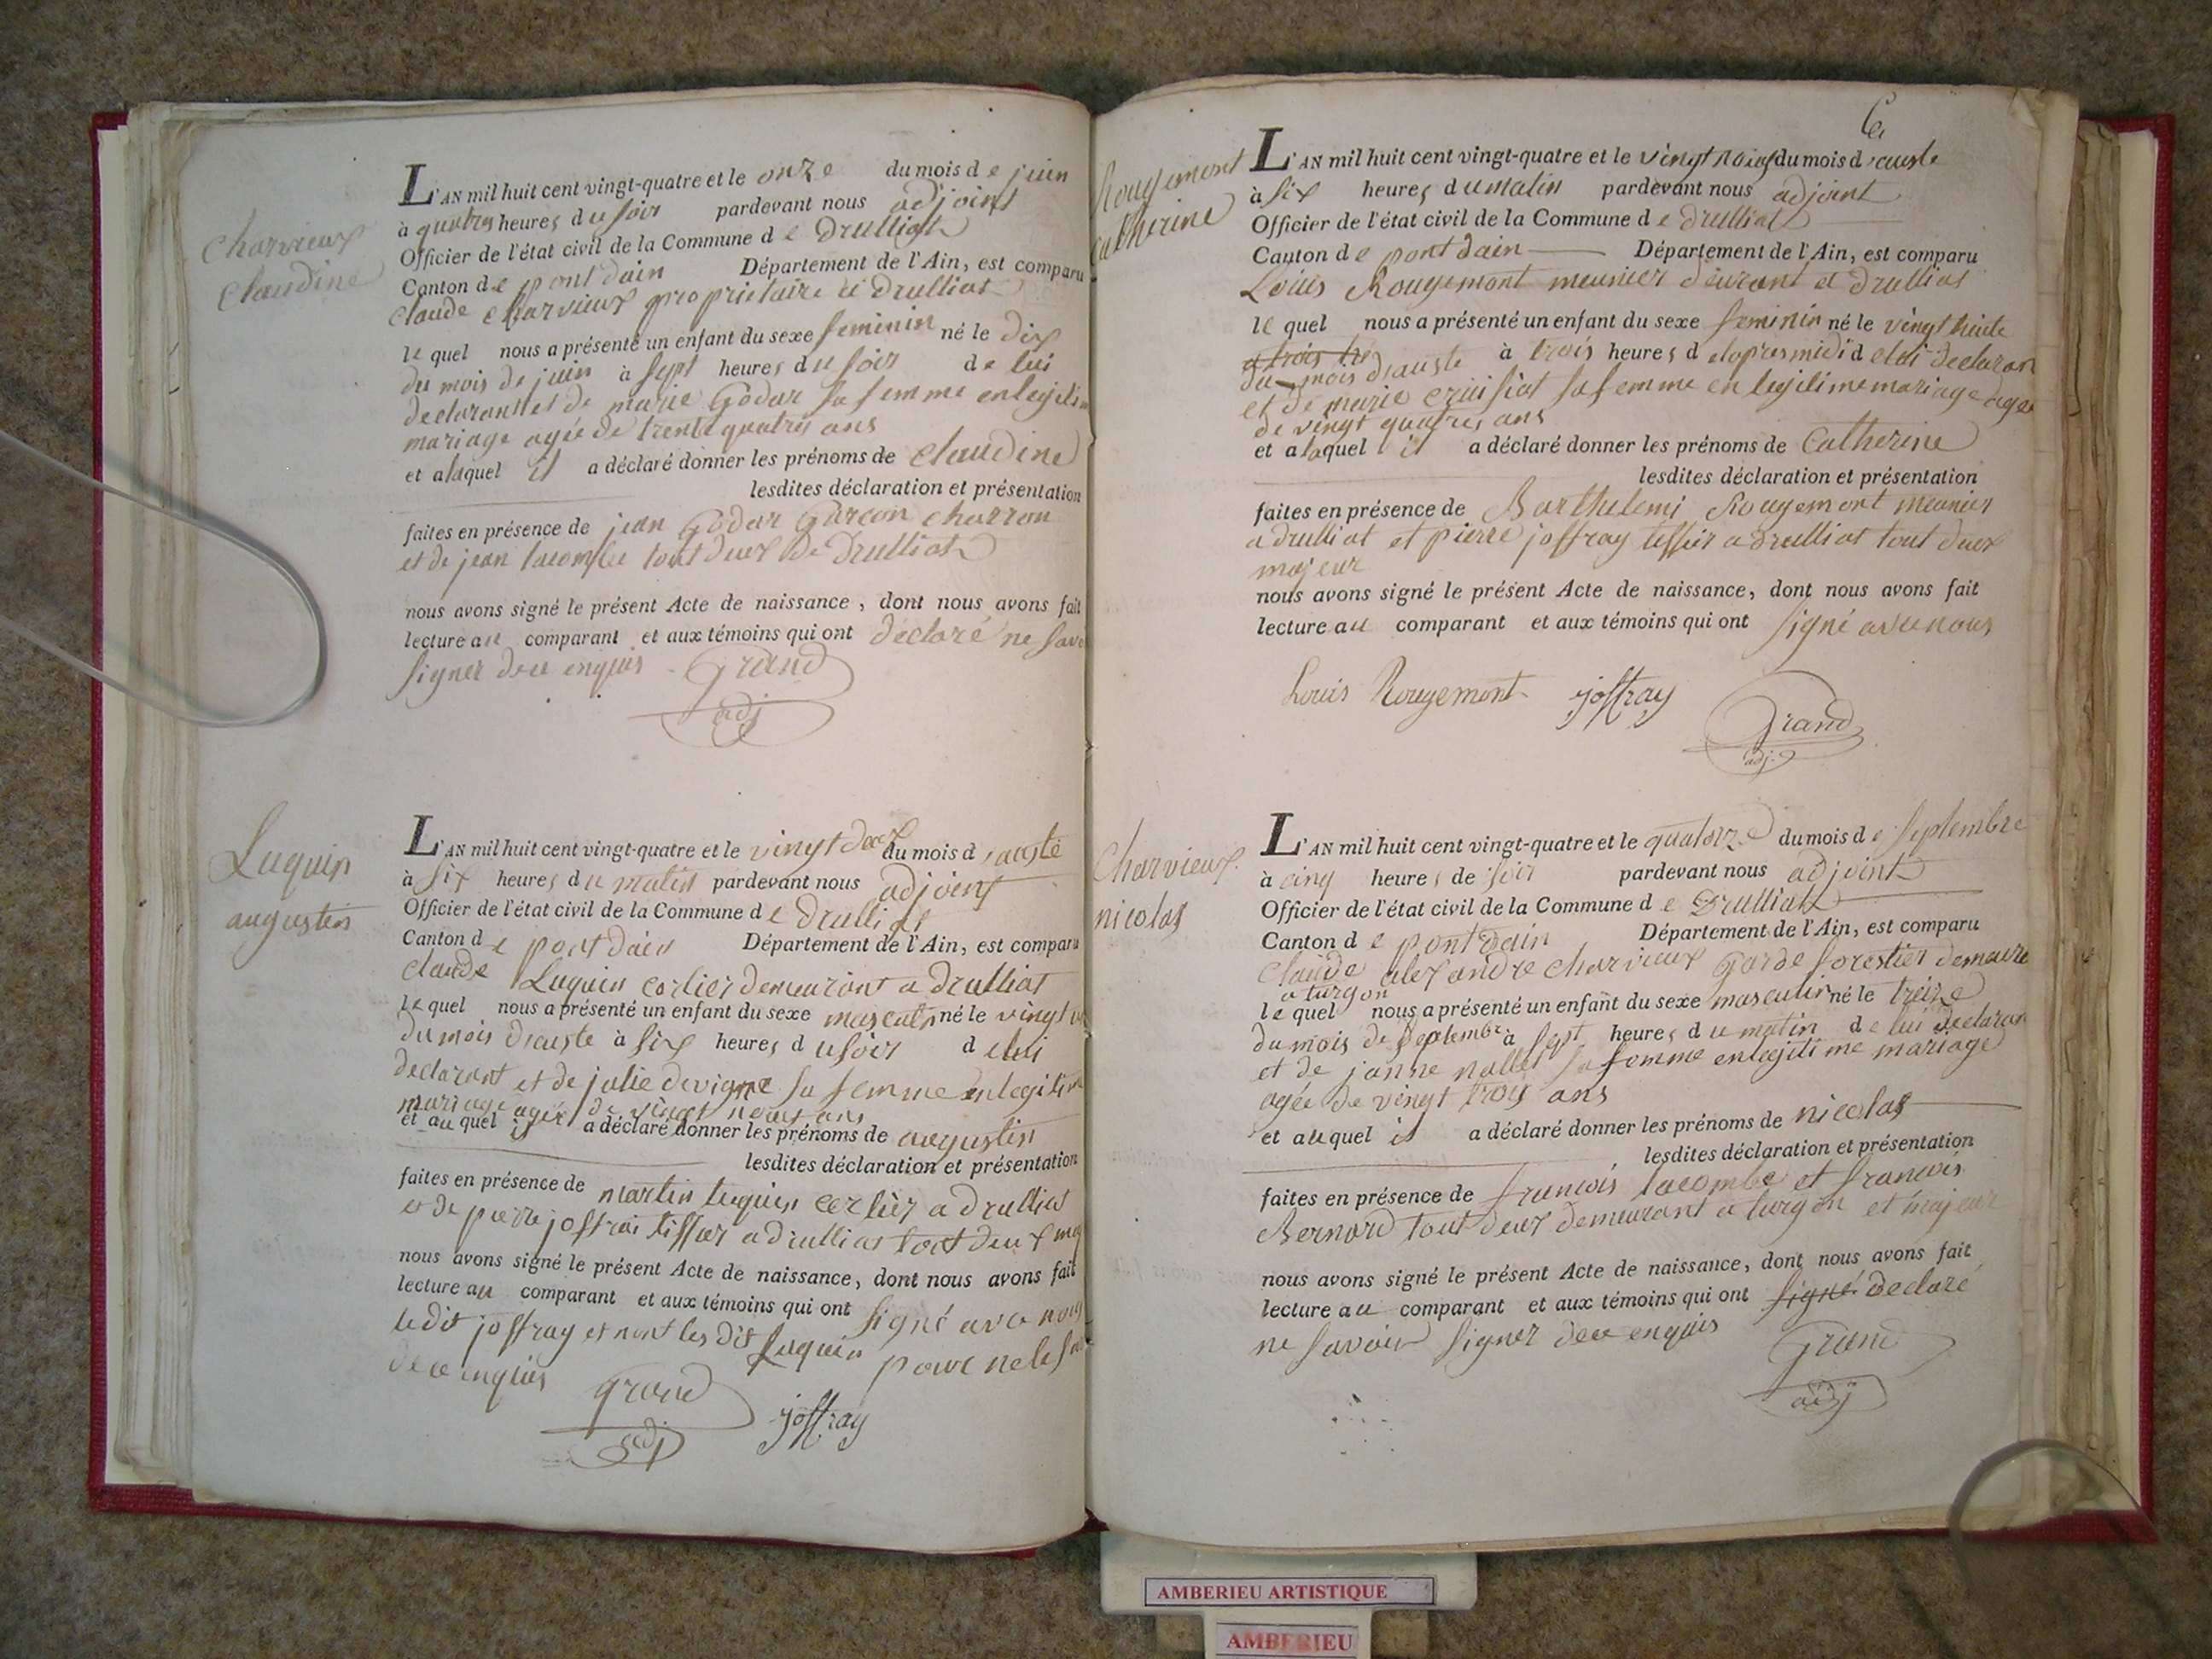 charvieux
claudine
L'AN mil huit cent vingt-quatre et le onze du mois de juin
à quatres heures du soir pardevant nous adjoint
Officier de l'état civil de la Commune de Drulliat
Canton de pont dain Département de l'Ain, est comparu
claude charvieux propriétaire a drulliat
le quel nous a présenté un enfant du sexe feminin né le dix
du mois de juin à sept heures du soir de lui
declarant et de marie Godar sa femme en legitim
mariage agée de trente quatres ans
et a laquel il a déclaré donner les prénoms de claudine
lesdites déclaration et présentation
faites en présence de jean Godar Garcon charron
et de jean lacombe tout deux de Drulliat
nous avons signé le présent Acte de naissance, dont nous avons fait
lecture au comparant et aux témoins qui ont déclaré ne sav
signer de ce enquis Grand
adj
Luquin
augustin
L'AN mil huit cent vingt-quatre et le vingt deux du mois d'auste
à six heures du matin pardevant nous adjoint
Officier de l'état civil de la Commune de Drulliat
Canton de pont dain Département de l'Ain, est comparu
claude Luquin cerlier demeurant a drulliat
le quel nous a présenté un enfant du sexe masculin né le vingt
du mois d'auste à six heures du soir de lui
declarant et de julie devigne sa femme en legitim
mariage agée de vingt neuf ans
et au quel il a déclaré donner les prénoms de augustin
lesdites déclaration et présentation
faites en présence de martin luquin cerlier a drulliat
et de pierre joffrai tissier a drulliat tout deux maj
nous avons signé le présent Acte de naissance, dont nous avons fait
lecture au comparant et aux témoins qui ont signé avec nous
le dit joffray et nont les dit Luquin pour ne le sa
de ce enquis Grand joffray
adj
6
Rougemont
catherine
L'AN mil huit cent vingt-quatre et le vingt neuf du mois d'auste
à six heures du matin pardevant nous adjoint
Officier de l'état civil de la Commune de drulliat
Canton de pont dain Département de l'Ain, est comparu
Louis Rougemont meunier a drulliat
le quel nous a présenté un enfant du sexe feminin né le vingt huite
du mois d'auste à trois heures de lapres midi de lui declaran
et de marie cruisiat sa femme en legitime mariage agée
de vingt quatres ans
et a laquel il a déclaré donner les prénoms de Catherine
lesdites déclaration et présentation
faites en présence de Barthelemi Rougemont meunier
a drulliat et pierre joffray tissier a drulliat tout deux
majeur
nous avons signé le présent Acte de naissance, dont nous avons fait
lecture au comparant et aux témoins qui ont signé avec nous
Louis Rougemont joffray
Grand
adj
Charvieux
nicolas
L'AN mil huit cent vingt-quatre et le quatorze du mois de septembre
à cinq heures de soir pardevant nous adjoint
Officier de l'état civil de la Commune de Drulliat
Canton de pont dain Département de l'Ain, est comparu
claude alexandre charvieux Garde forestier demeure
a turgon
le quel nous a présenté un enfant du sexe masculin né le treize
du mois de septembr à sept heures du matin de lui declaran
et de janne nallet sa femme en legitime mariage
agée de vingt trois ans
et au quel il a déclaré donner les prénoms de nicolas
lesdites déclaration et présentation
faites en présence de francois lacombe et francois
Bernard tout deux demeurant a turgon et majeur
nous avons signé le présent Acte de naissance, dont nous avons fait
lecture au comparant et aux témoins qui ont signé declaré
ne savoir signer de ce enquis
Grand
adj
AMBERIEU ARTISTIQUE
AMBERIEU